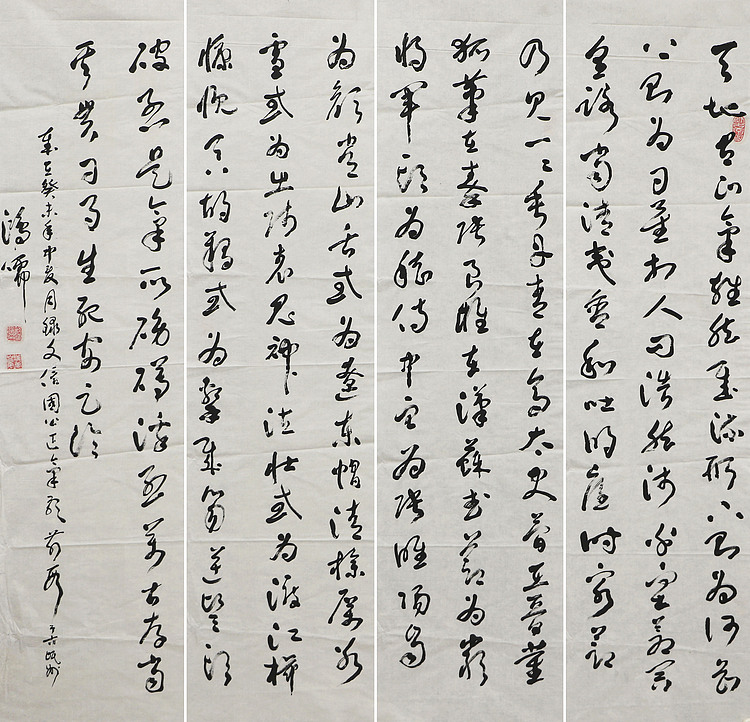 天地有正氣雜然賦流形下則為河嶽
上則為日星於人曰浩然沛乎塞蒼冥
皇路當清夷含和吐明庭時窮節
乃見一一垂丹青在齊太史簡在晉董
狐筆在秦張良椎在漢蘇武節為嚴
將軍頭為嵇侍中血為張睢陽齒
為顏常山舌或為遼東帽清操厲冰
雪或為出師表鬼神泣壯或為渡江楫
慷慨吞胡羯或為擊賊笏逆豎頭
破裂是氣所磅礴凜烈萬古存當
其貫日月生死安足論
歲在癸未年中夏月錄文信國公正氣歌前段
鴻儒